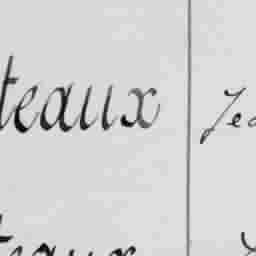 teaux Jea
teaux